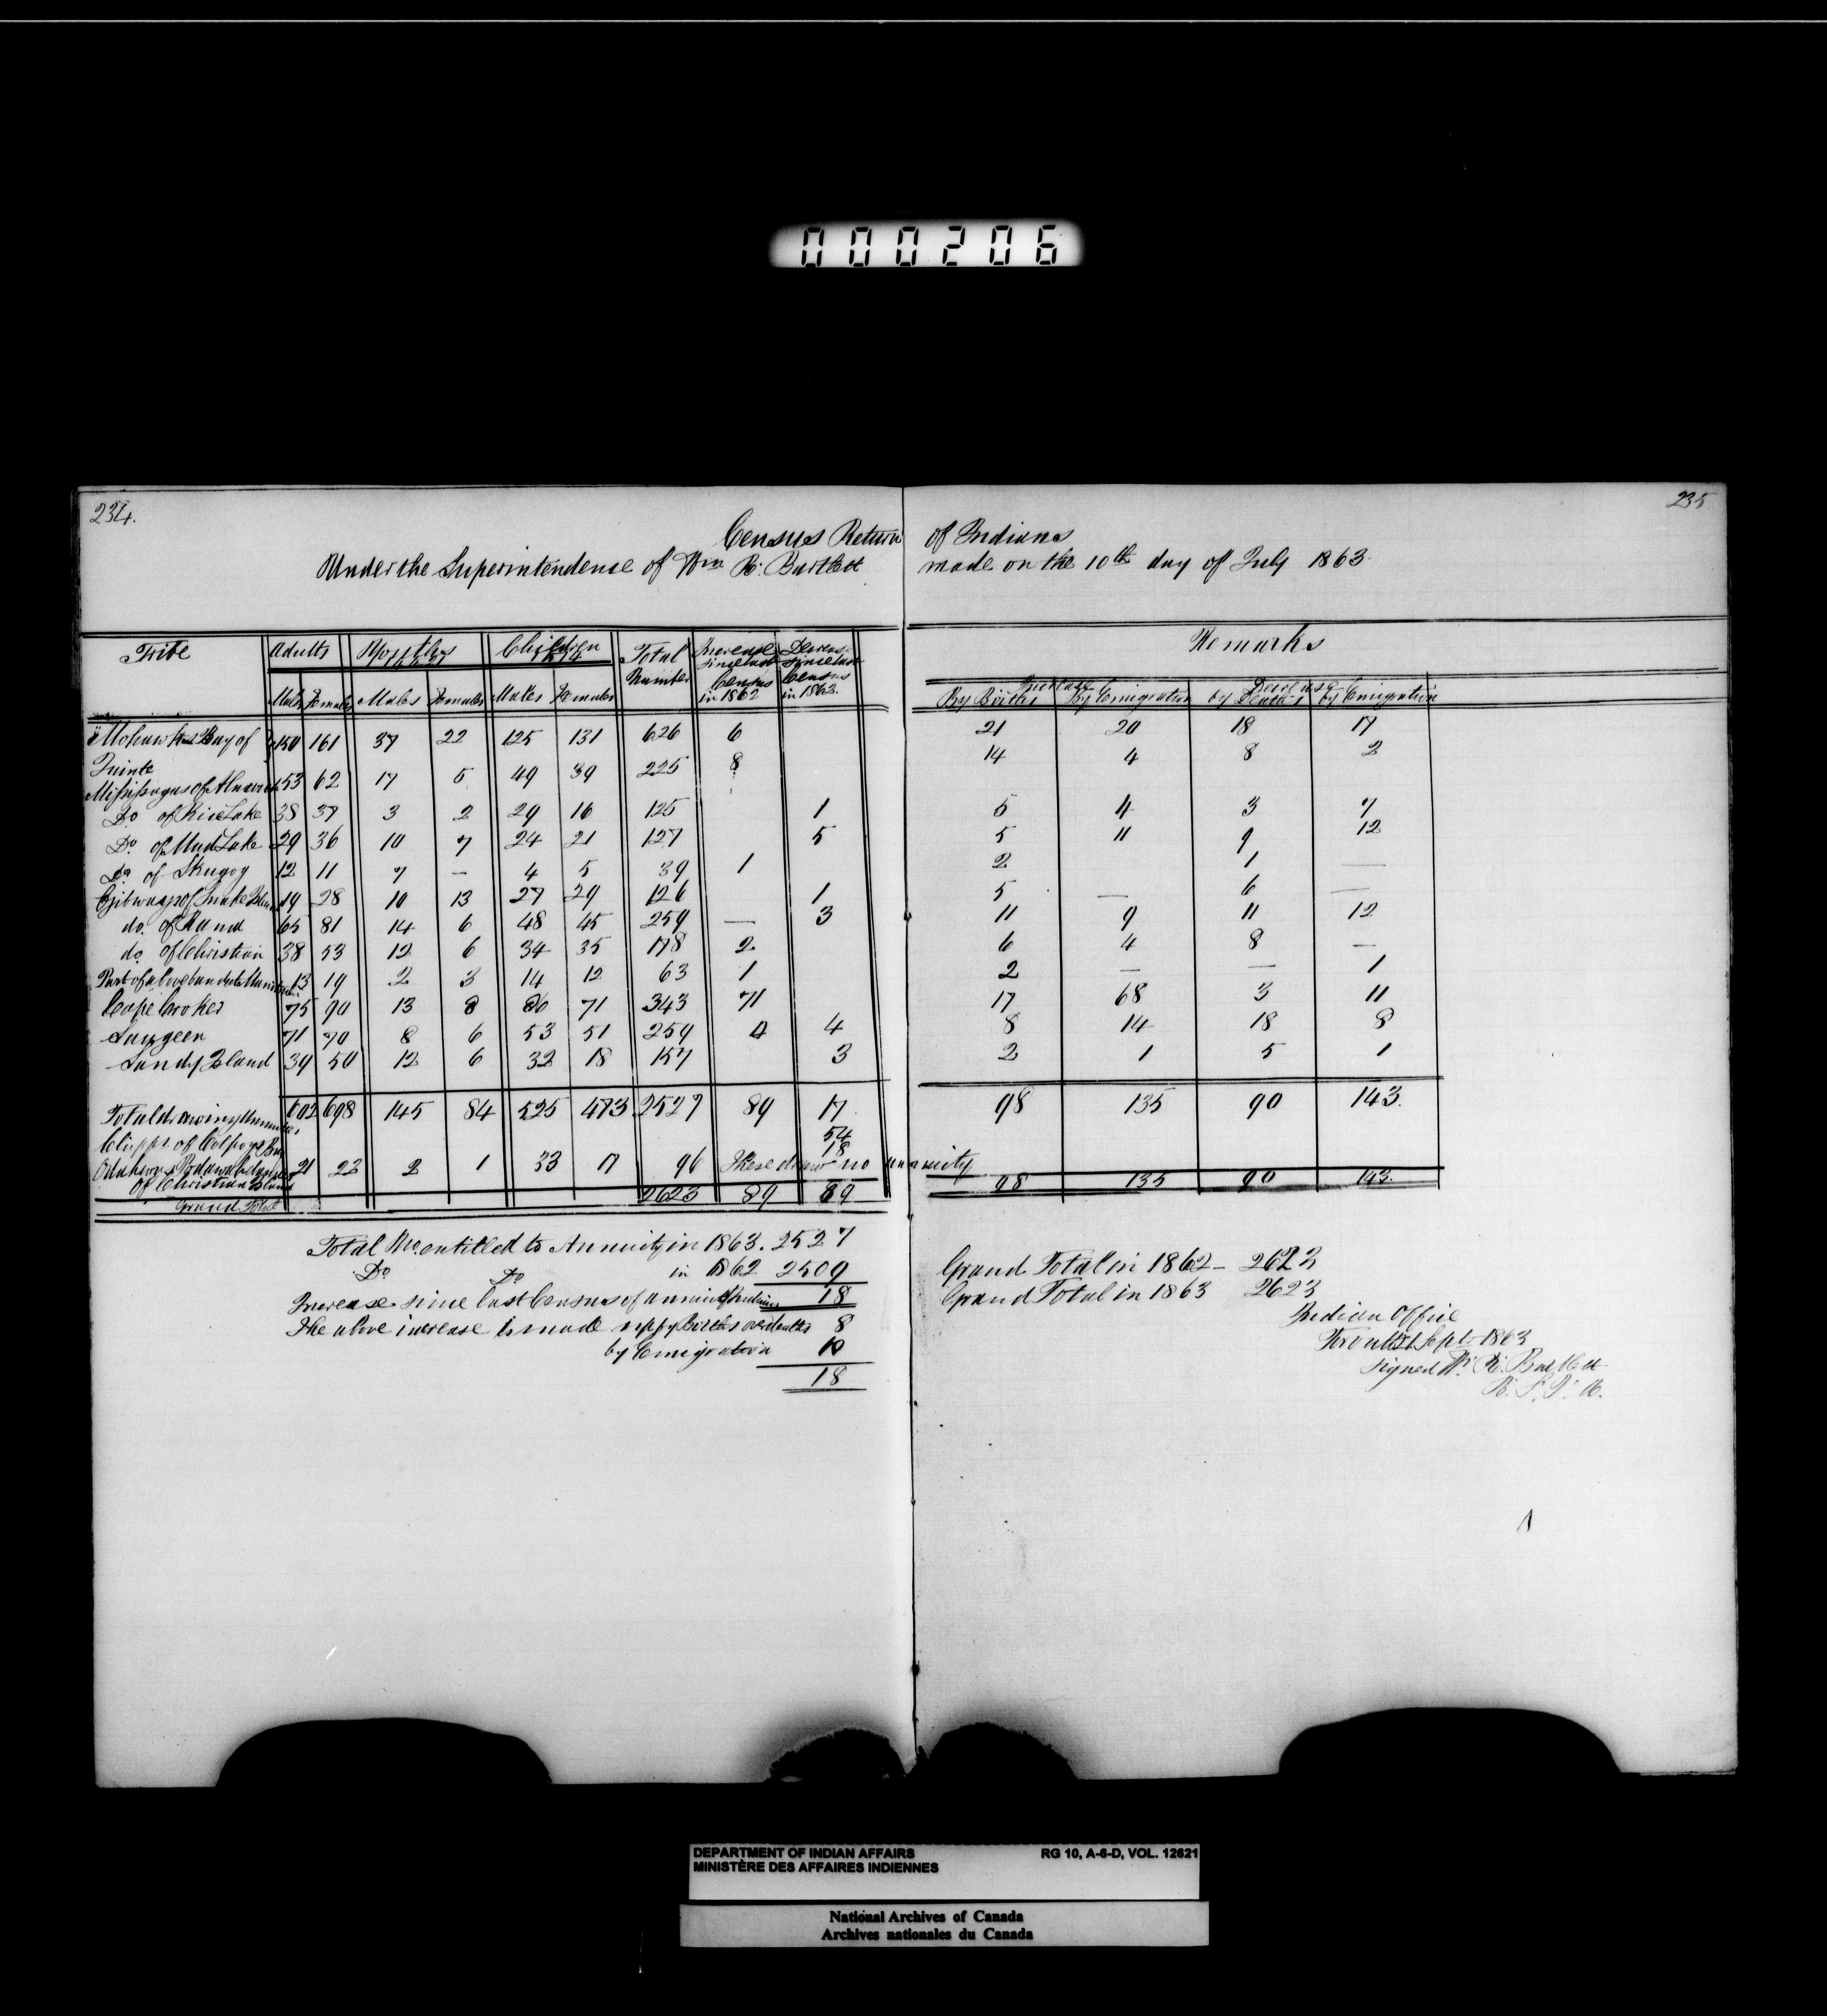 000206
234.
235
Census Return of Indians
Under the Superintendense of Wm R. Bartlett made on the 10th day of July 1863.
Tribe Adults Youths Children Total Number Increase since last Census in 1862 Decrease since last Census in 1862. Remarks
Males Females Males Females Males Females Increase By Births By Emigration Decrease by Deaths by Emigration
Mohawks Bay of Quinte 150 161 37 22 125 131 626 6 21 20 18 17
Missisagas of Alnwick 53 62 17 5 49 39 225 8 14 4 8 2
Do of Rice Lake 38 37 3 2 29 16 125 1 5 4 3 7
Do of Mud Lake 29 36 10 7 24 21 127 5 5 11 9 12
Do of Skugog 12 11 7 — 4 5 39 1 2 1 —
Ojibways of Snake Island 19 28 10 13 27 29 126 1 5 — 6 —
do. of Rama 65 81 14 6 48 45 259 — 3 11 9 11 12
do of Christian 38 53 12 6 34 35 178 2 6 4 8 —
Part of above band at Manitoulin 13 19 2 3 14 12 63 1 2 — — 1
Cape Croker 75 90 13 8 86 71 343 71 17 68 3 11
Saugeen 71 70 8 6 53 51 259 4 8 14 18 8
Sandy Island 39 50 12 6 32 18 157 3 2 1 5 1
Total drawing Annuities 602 698 145 84 525 473 2527 89 17 98 135 90 143.
Chipps of Colpoys Bay 54
18
Odahwas & Podawahdamies of Christian Island 21 22 2 1 33 17 96 These draw no annuity
Grand Total 2623 89 89 98 135 90 143.
Total No. entitled to Annuity in 1863. 2527
Do Do in 1862 2509
Increase since last Census of annuity Indians 18
The above increase is made up by Births over deaths 8
by Emigration 10
18
Grand Total in 1862 – 2623
Grand Total in 1863 2623
Indian Office
Toronto Sept 1863
signed W. R. Bartlett
DEPARTMENT OF INDIAN AFFAIRS RG 10, A-6-D, VOL. 12621
MINISTÈRE DES AFFAIRES INDIENNES
National Archives of Canada
Archives nationales du Canada